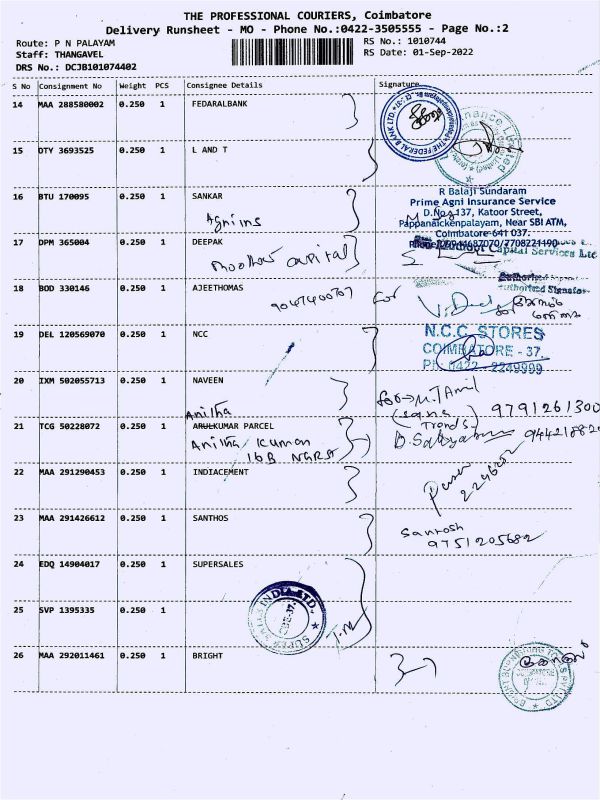 THE PROFESSIONAL COURIERS, Coimbatore
Delivery Runsheet - MO - Phone No.:0422-3505555 - Page No.:2
Route: P N PALAYAM
Staff: THANGAVEL
DRS No.: DCJB101074402
RS No.: 1010744
RS Date: 01-Sep-2022
S No Consignment No Weight PCS Consignee Details Signature
14 MAA 288580002 0.250 1 FEDARALBANK
THE FEDERAL BANK LTD.
15 DTY 3693525 0.250 1 L AND T
16 BTU 170095 0.250 1 SANKAR
Agni ins
R Balaji Sundaram
Prime Agni Insurance Service
D.No. 137, Katoor Street,
Pappanaickenpalayam, Near SBI ATM,
Coimbatore-641 037.
17 DPM 365004 0.250 1 DEEPAK
Capital Services Ltd
Authorised Signator
18 BOD 330146 0.250 1 AJEETHOMAS
for
19 DEL 120569070 0.250 1 NCC
N.C.C. STORES
COIMBATORE - 37.
PH: 0422 - 2249999
20 IXM 502055713 0.250 1 NAVEEN
9791261300
21 TCG 50228072 0.250 1 ARULKUMAR PARCEL
Anitha
Anitha Kumar
22 MAA 291290453 0.250 1 INDIACEMENT
23 MAA 291426612 0.250 1 SANTHOS
Santosh
9751205682
24 EDQ 14904017 0.250 1 SUPERSALES
25 SVP 1395335 0.250 1
SUPER SALES INDIA LTD.
26 MAA 292011461 0.250 1 BRIGHT